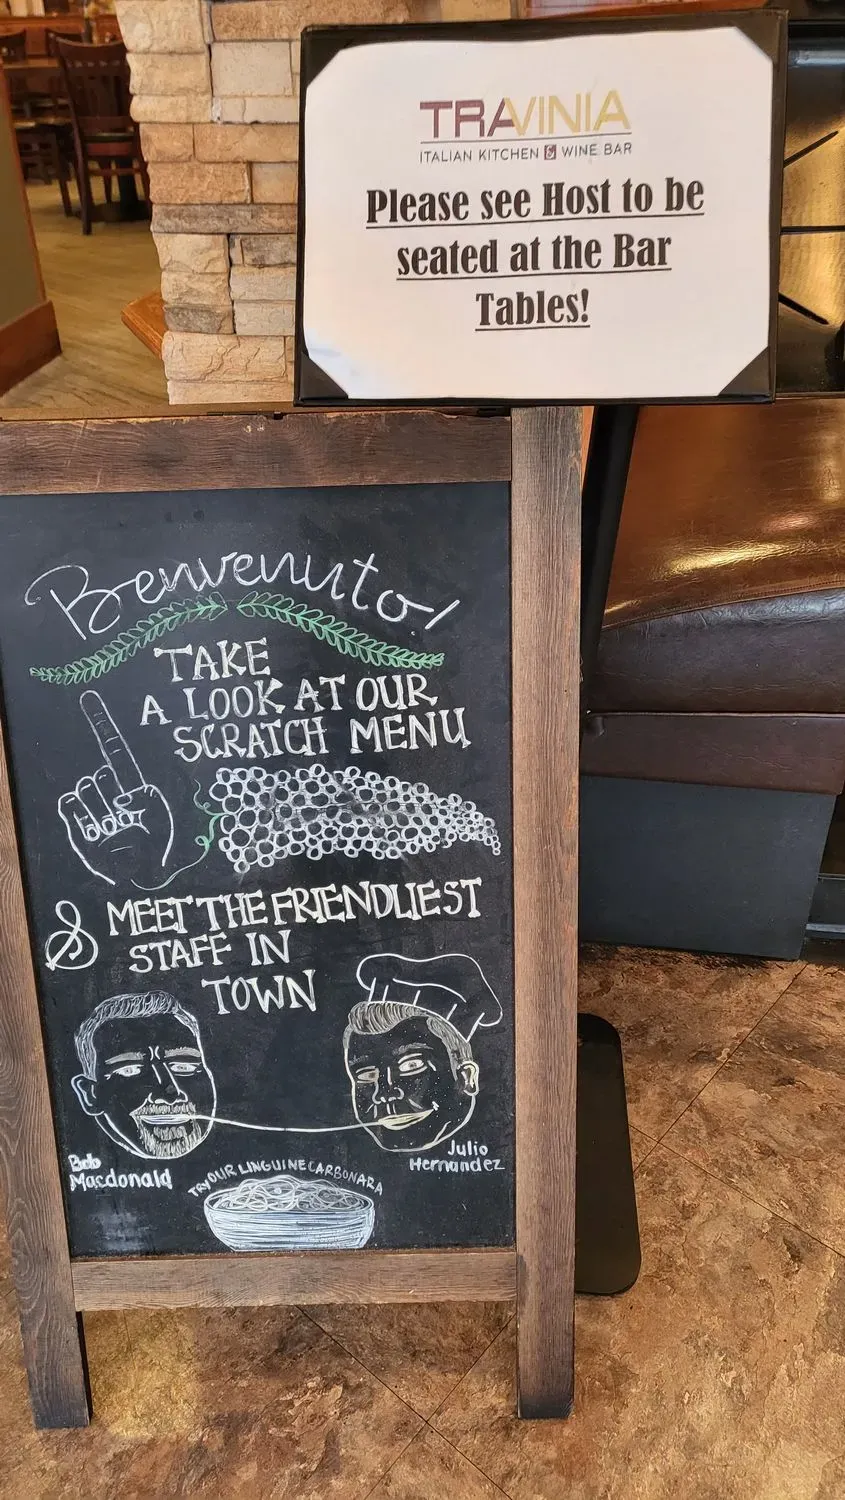 TRAVINIA
ITALIAN KITCHEN & WINE BAR
Please see Host to be
seated at the Bar
Tables!
Benvenuto!
TAKE
A LOOK AT OUR
SCRATCH MENU
& MEET THE FRIENDLIEST
STAFF IN
TOWN
Bob
Macdonald
Julio
Hernandez
TRY OUR LINGUINE CARBONARA